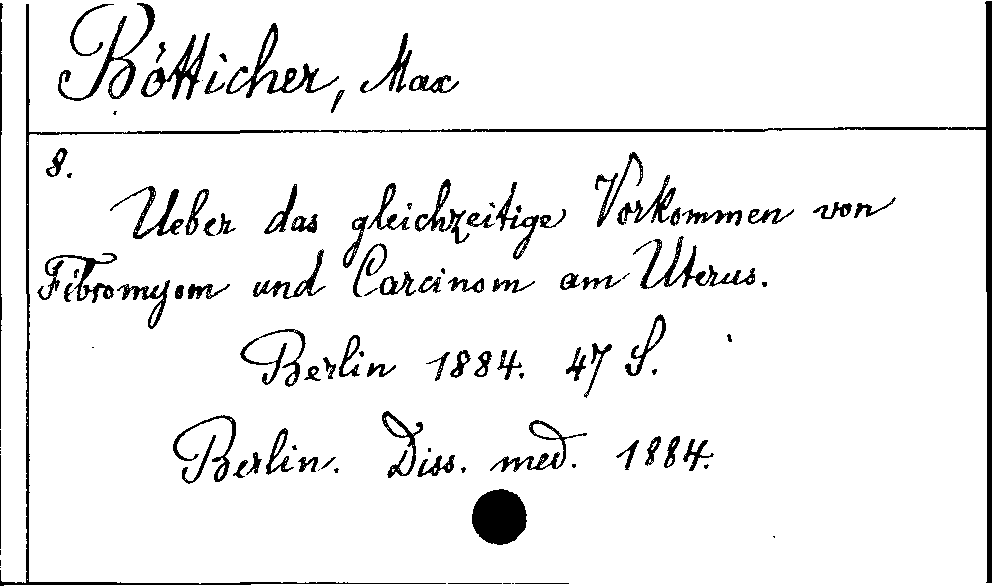 Bötticher, Max
8.
Ueber das gleichzeitige Vorkommen von
Fibromyom und Carcinom am Uterus.
Berlin 1884. 47 S.
Berlin. Diss. med. 1884.